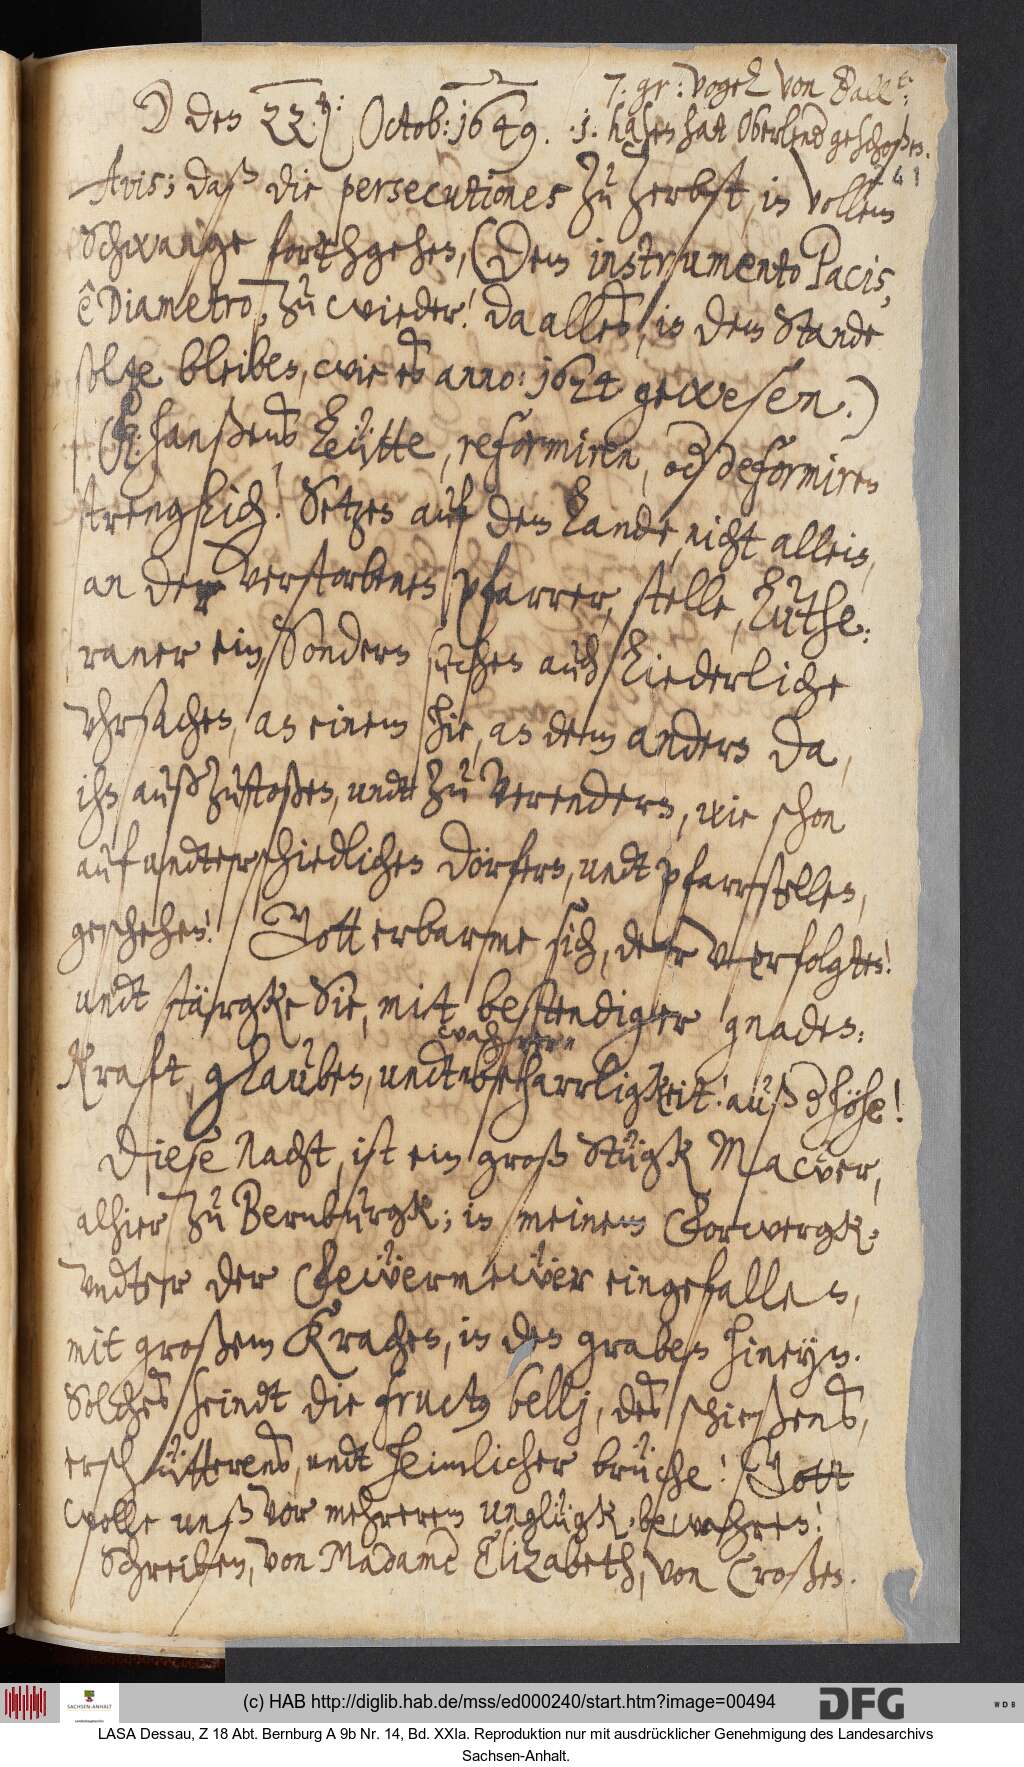 7. gr: Vogel von Ball:
☽ den 22. Octob: 1649. .1. hasen hat Oberlender geschoßen.
241
Avis; daß die persecutiones zu Zerbst, in vollem
Schwange forthgehen, (dem instrumento Pacis,
ê Diametro, zu wieder! da alles, in dem Stande
solte bleiben, wie es anno: 1624 gewesen.)
hanßens Leütte, reformiren, od deformiren
strenglich! Setzen auf dem Lande, nicht allein,
an der verstorbenen pfarrer, stelle, Luthe:
raner ein, Sondern suchen auch liederliche
uhrsachen, an einem hie, an dem andern da,
ihn außzustoßen, undt zu verendern, wie schon
auf undterschiedlichen dörfern, undt pfarrstellen,
geschehen! Gott erbarme sich, der verfolgten!
undt stärgke Sie, mit bestendiger gnaden:
wahren
Kraft, glauben, undt beharrligkeit! auß d höhe!
Diese Nacht, ist ein groß Stügk Maẅer,
alhier zu Bernburgk; in meinem Forwergk,
undter der Feẅermeẅer eingefallen,
mit großem Krachen, in den graben hineyn.
Solches seindt die fructus bellj, des schießens,
erschütterens, undt heimlicher brüche! Gott
wolle unß vor mehrerem unglügk, bewahren!
Schreiben, von Madame Elizabeth, von Croßen.
(c) HAB http://diglib.hab.de/mss/ed000240/start.htm?image=00494
SACHSEN-ANHALT
DFG
WDB
LASA Dessau, Z 18 Abt. Bernburg A 9b Nr. 14, Bd. XXIa. Reproduktion nur mit ausdrücklicher Genehmigung des Landesarchivs
Sachsen-Anhalt.